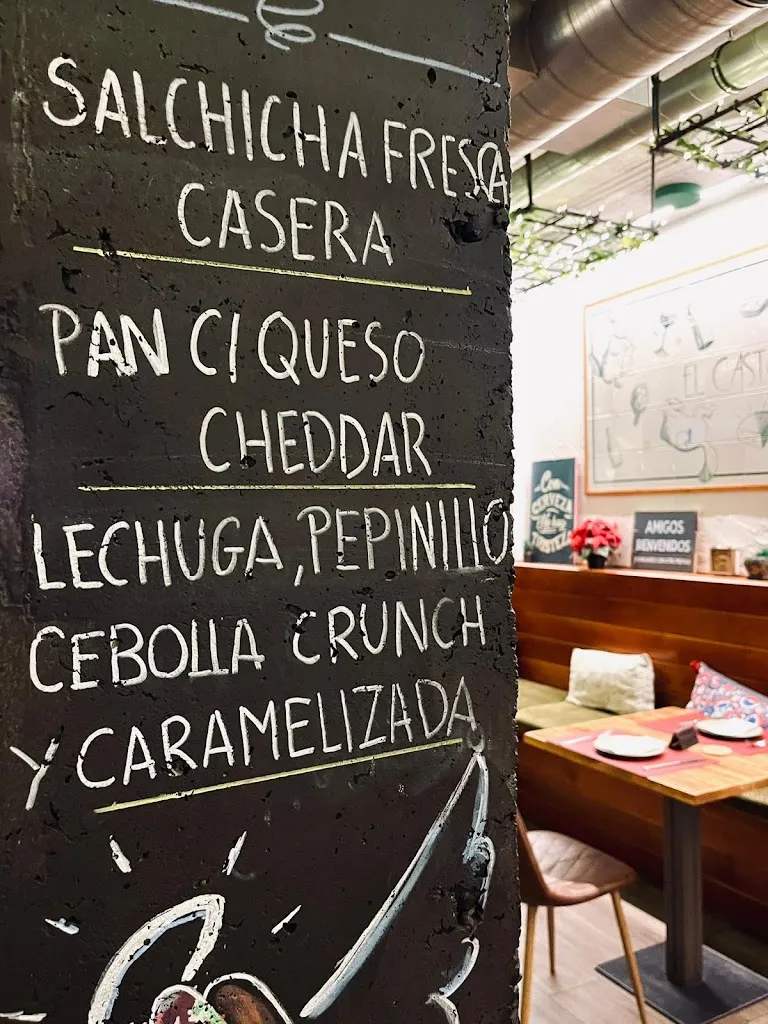 SALCHICHA FRESCA
CASERA
PAN C/ QUESO
CHEDDAR
LECHUGA, PEPINILLO
CEBOLLA CRUNCH
Y CARAMELIZADA
EL CAST
Con
CERVEZA
TORTEZA
AMIGOS
BENVENIDOS